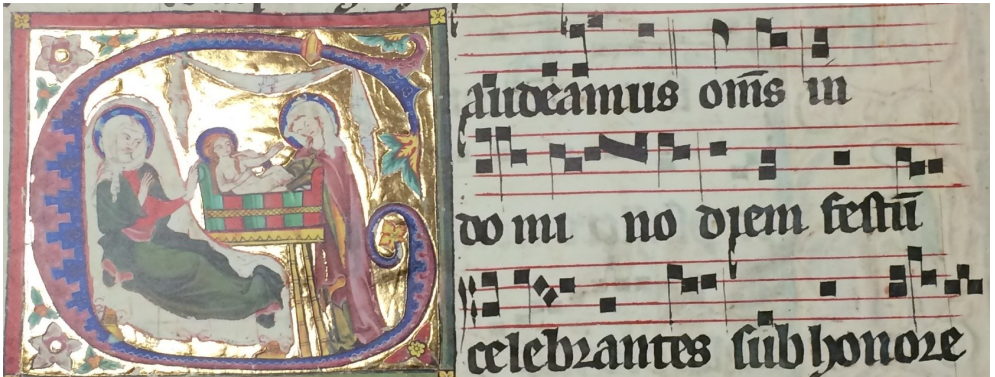 Gaudeamus om̄s in
do mi no diem festū
celebrantes sub honore